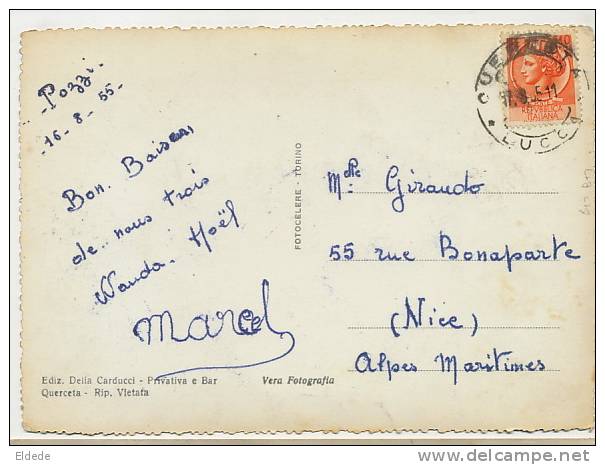 - Pozzi -
- 16 - 8 - 55 -
Bon. Baisers
de.. nous trois
Wanda. Noël
Marcel
Ediz. Delia Carducci - Privativa e Bar
Querceta - Rip. Vietata
Vera Fotografia
FOTOCELERE - TORINO
QUERCETA
LUCCA
REPVBBLICA
ITALIANA
Melle Giraudo
55 rue Bonaparte
(Nice)
Alpes Maritimes
Eldede
delcampe.net